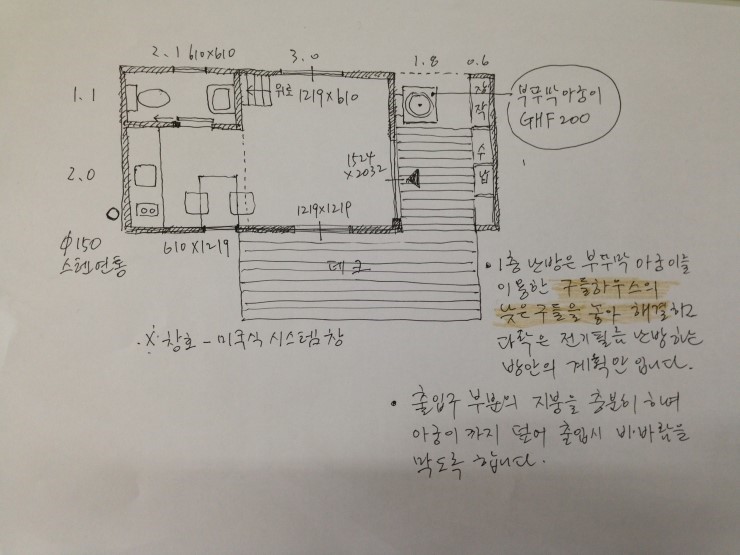 2.1 610×610 3.0 1.8 0.6
1.1
2.0
위로
1219×610
장작
수납
부뚜막 아궁이
GHF 200
1524
×2032
1219×1219
610×1219
φ150
스텐연통
데크
·※ 창호 - 미국식 시스템창
• 1층 난방은 부뚜막 아궁이를
이용한 구들하우스의
낮은 구들을 놓아 해결하고
다락은 전기필름 난방하는
방안의 계획안 입니다.
• 출입구 부분의 지붕을 충분히 하여
아궁이까지 덮어 출입시 비·바람을
막도록 합니다.